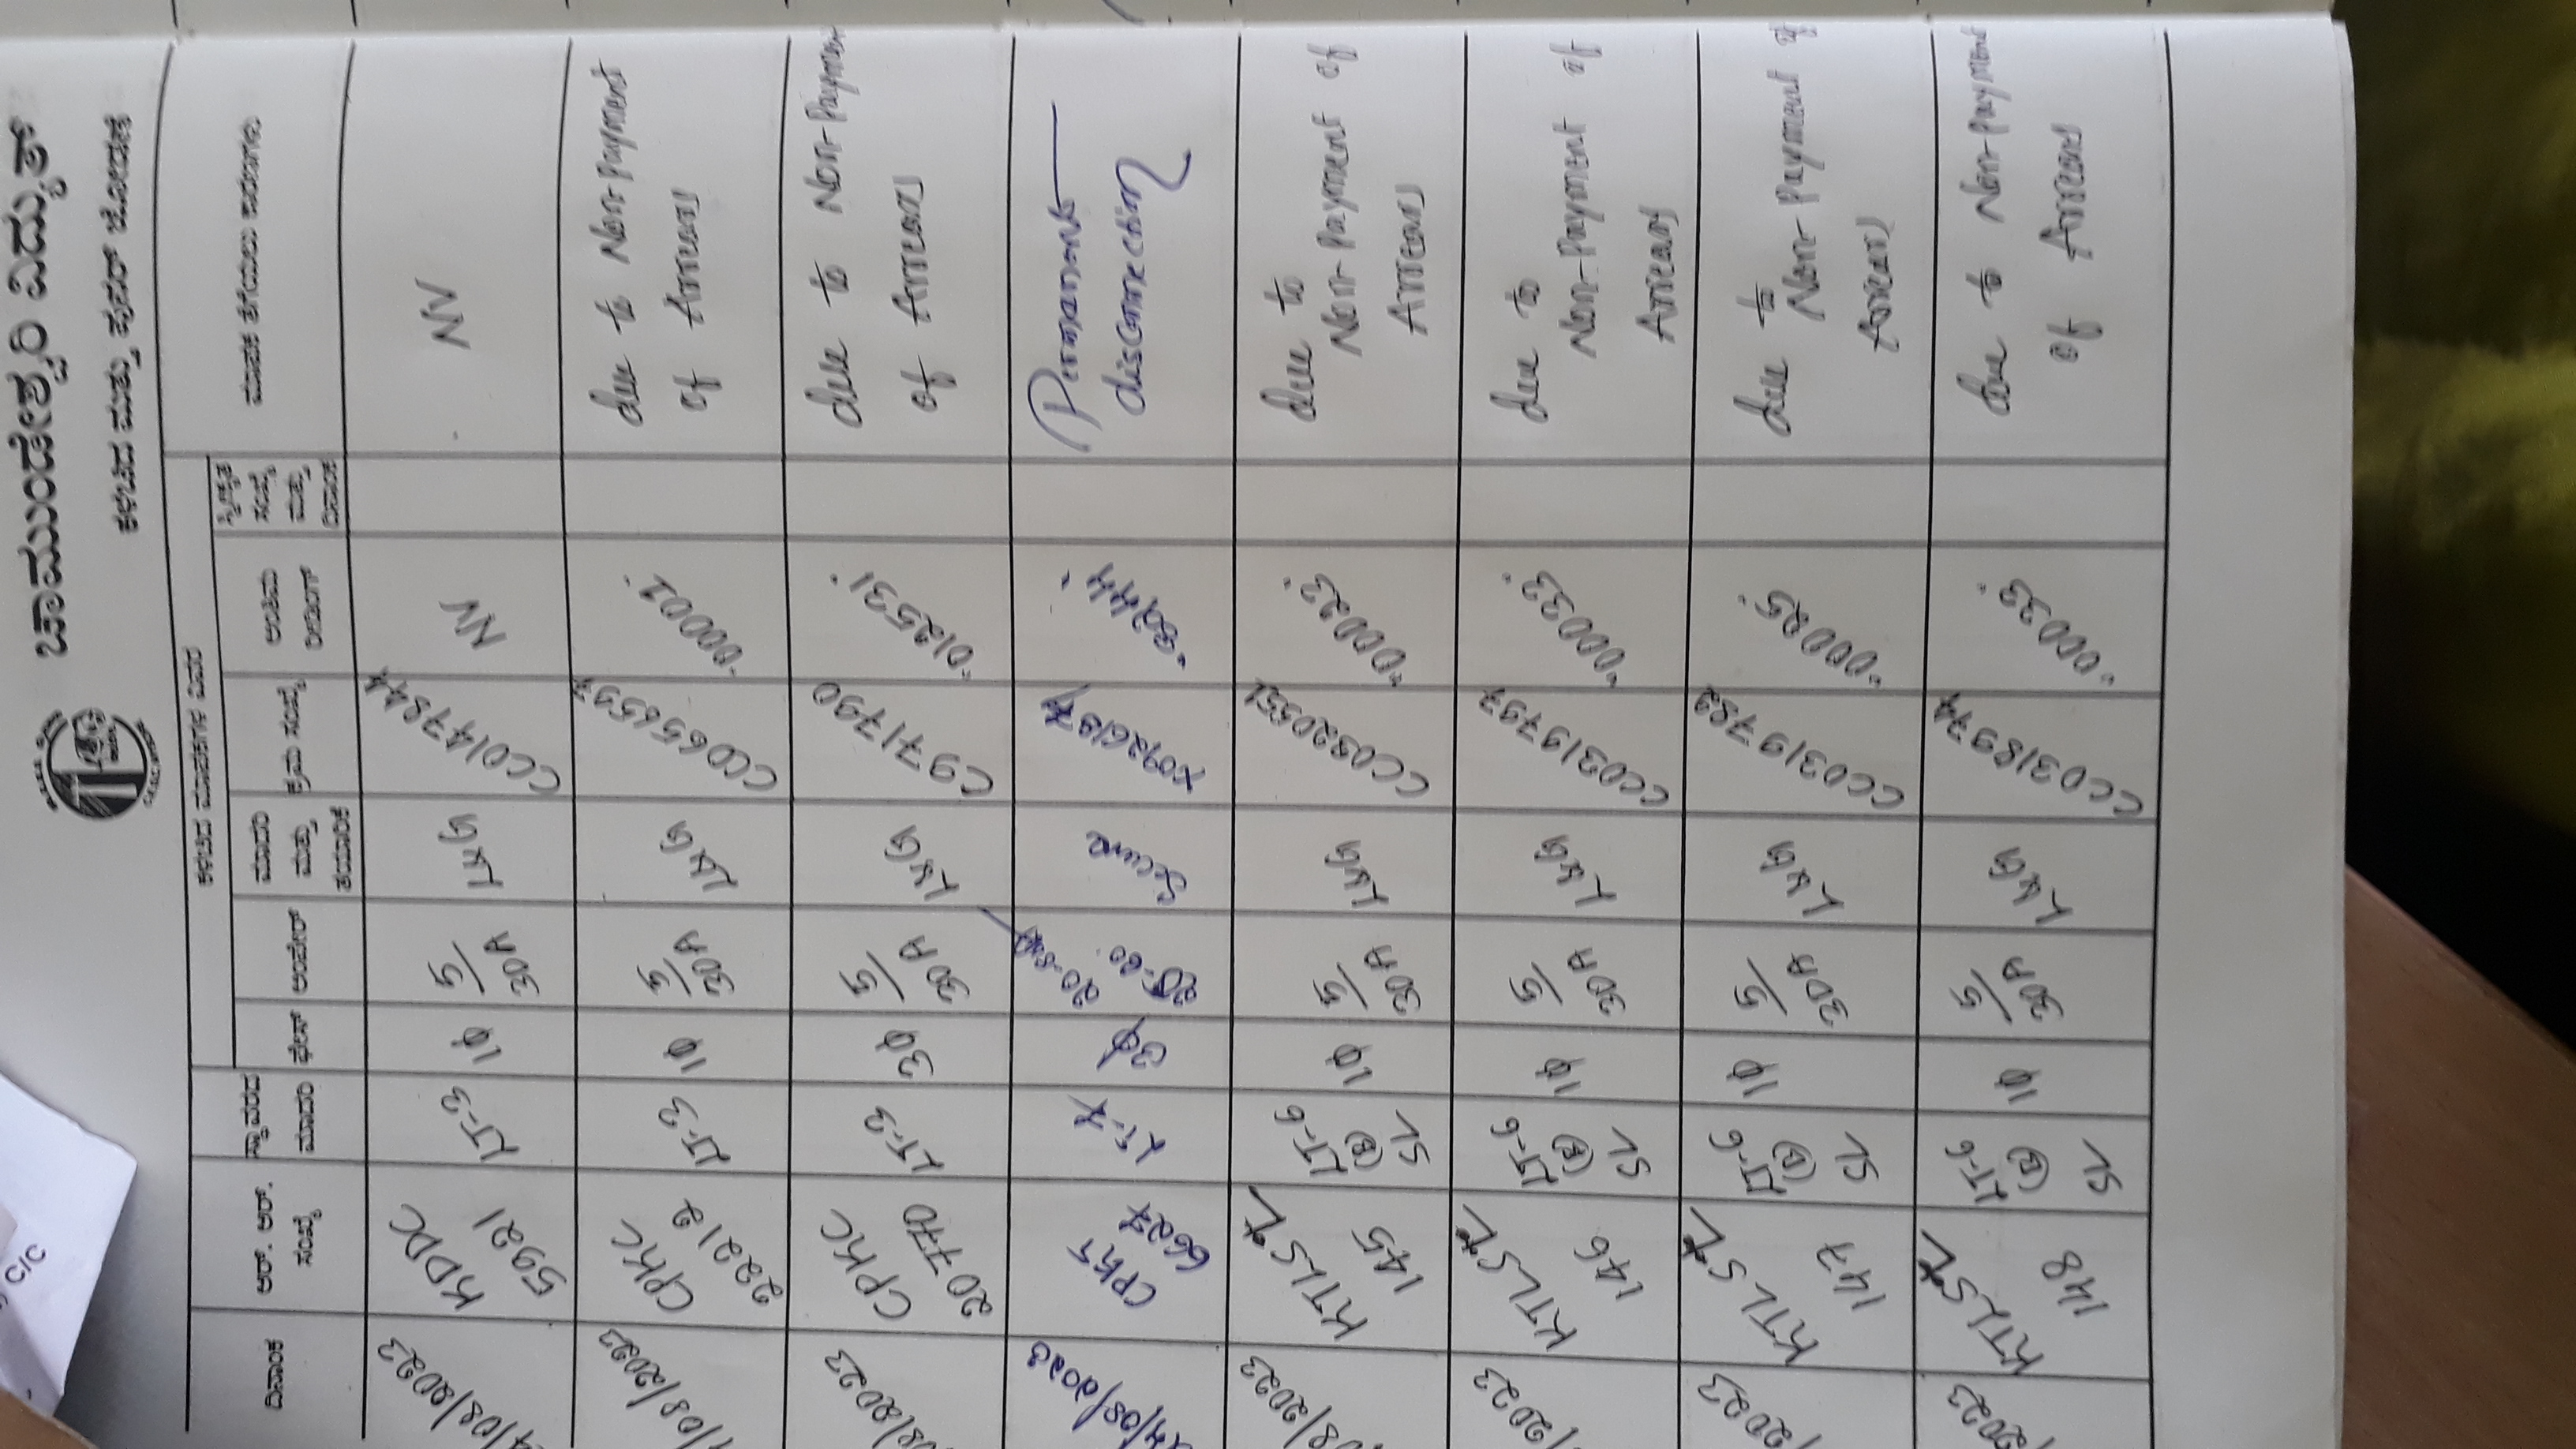 ಚಾಮುಂಡೇಶ್ವರಿ ವಿದ್ಯುತ್
ಕಳಚಿದ ಮತ್ತು ಪುನರ್ ಜೋಡಣೆ
ದಿನಾಂಕ
ಆರ್. ಆರ್. ಸಂಖ್ಯೆ
ಸ್ಥಾವರದ ಮಾದರಿ
ಕಳಚಿದ ಮಾಪಕಗಳ ವಿವರ
ಫೇಸ್
ಆಂಪೇರ್
ಮಾದರಿ ಮತ್ತು ತಯಾರಿಕೆ
ಕ್ರಮ ಸಂಖ್ಯೆ
ಅಂತಿಮ ರೀಡಿಂಗ್
ಸಂಖ್ಯೆ ಮತ್ತು ದಿನಾಂಕ
ಮಾಪಕ ತೆಗೆಯಲು ಕಾರಣಗಳು
/08/2023 KDDC 5921 LT-3 1φ 5/30A L&G CC0147844 NV NV
/08/2023 CPKC 22212 LT-3 1φ 5/30A L&G CC0656597 "00001" due to Non-Payment of Arrears
08/2023 CPKC 20770 LT-3 3φ 5/30A L&G C971790 "012531" due to Non-Payment of Arrears
24/08/2023 CPKT 6627 LT-7 3φ Secure "8244" Permanent disconnection
08/2023 KTLSL 145 LT-6 (B) SL 1φ 5/30A L&G CC0320551 "00023" due to Non-Payment of Arrears
/2023 KTLSL 146 LT-6 (B) SL 1φ 5/30A L&G CC0319797 "00033" due to Non-Payment of Arrears
/2023 KTLSL 147 LT-6 (B) SL 1φ 5/30A L&G CC0319789 "00025" due to Non-Payment of Arrears
2023 KTLSL 148 LT-6 (B) SL 1φ 5/30A L&G CC0318974 "00033" due to Non-Payment of Arrears